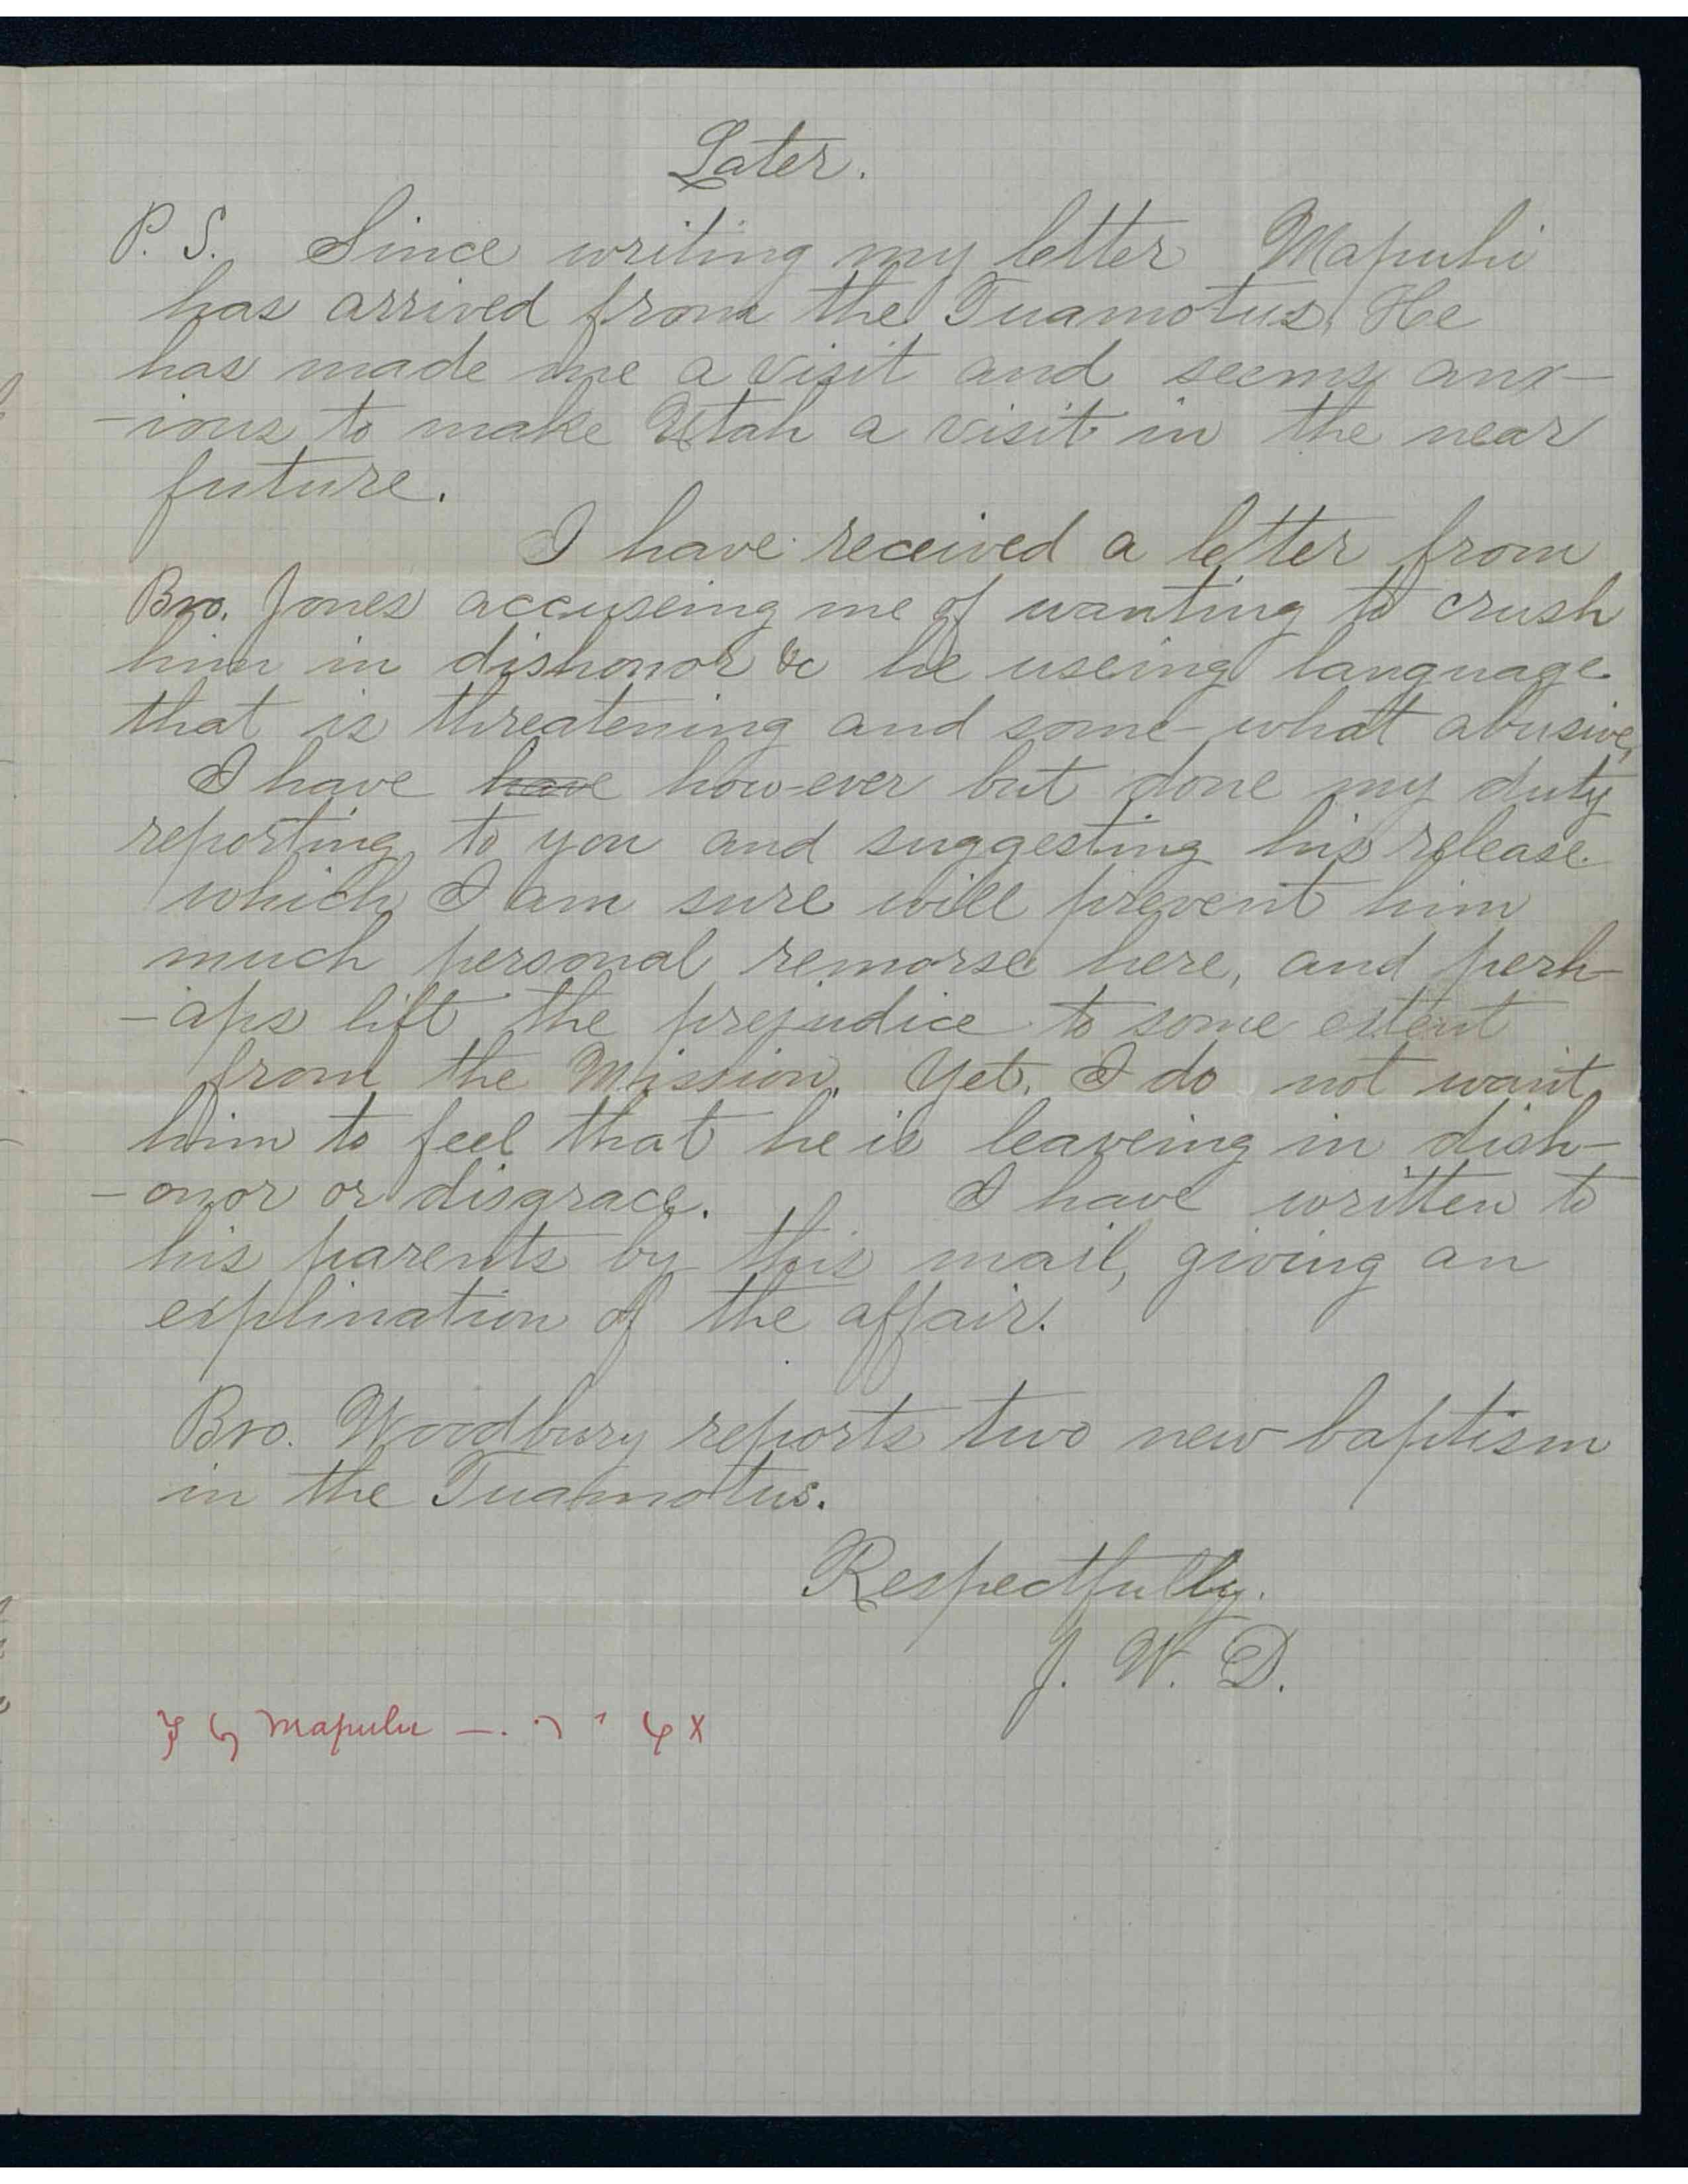 Later.
P. S. Since writing my letter Mapuhi
has arrived from the Tuamotus. He
has made me a visit and seems anx-
-ious to make Utah a visit in the near
future.
I have received a letter from
Bro. Jones accuseing me of wanting to crush
him in dishonor &c he useing language
that is threatening and some-what abusive,
I have have how-ever but done my duty
reporting to you and suggesting his release
which I am sure will prevent him
much personal remorse here, and perh-
-aps lift the prejudice to some extent
from the Mission. Yet, I do not want
him to feel that he is leaveing in dish-
-onor or disgrace. I have written to
his parents by this mail, giving an
explination of the affair.
Bro. Woodbury reports two new baptism
in the Tuamotus.
Respectfully.
J. W. D.
Mapuhi